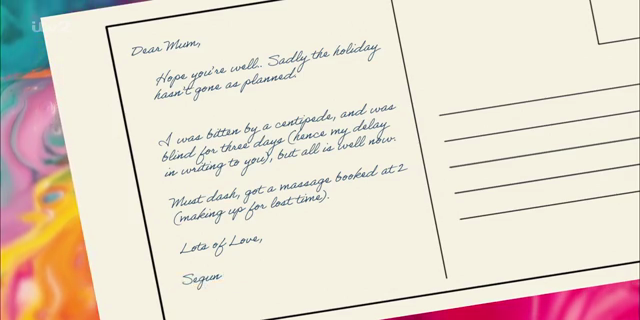 itv2
Dear Mum,
Hope you're well.. Sadly the holiday
hasn't gone as planned.
I was bitten by a centipede, and was
blind for three days (hence my delay
in writing to you), but all is well now.
Must dash, got a massage booked at 2
(making up for lost time).
Lots of Love,
Segun